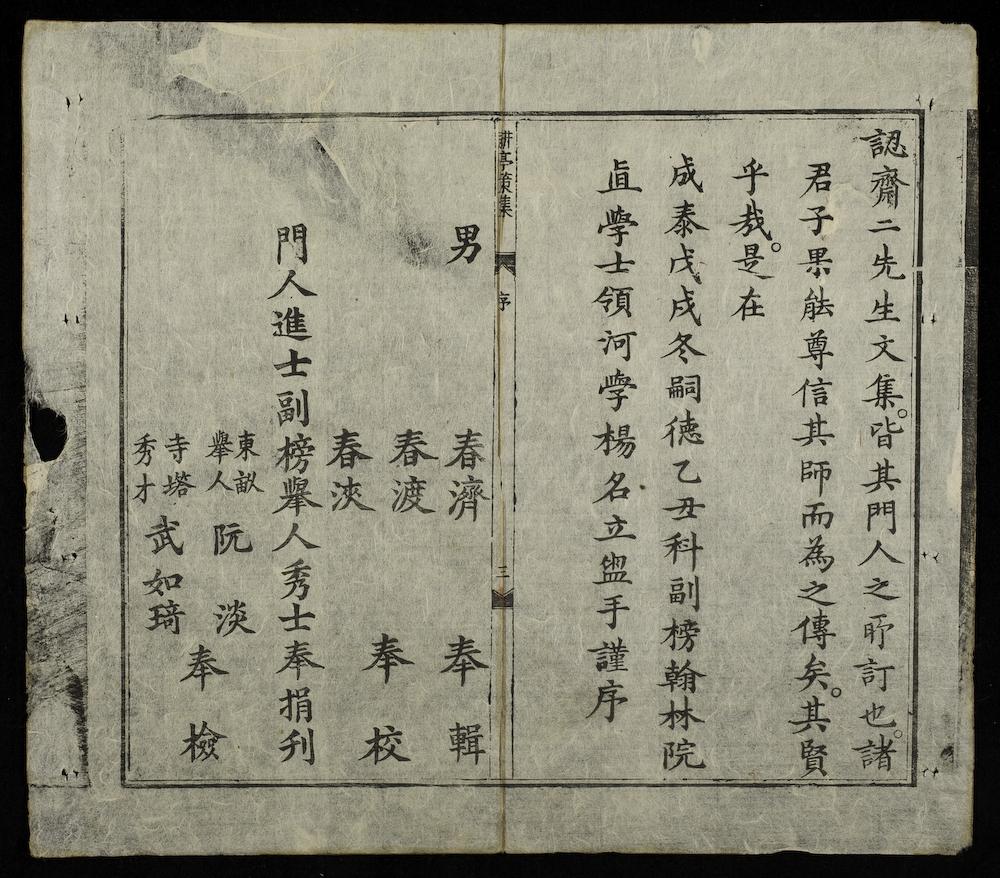 認齋二先生文集。皆其門人之所訂也。諸
君子果能尊信其師而為之傳矣。其賢
乎哉。是在
成泰戊戌冬嗣德乙丑科副榜翰林院
直學士領河學楊名立盥手謹序
耕亭策集
序
三
男
春濟
奉輯
春渡
奉校
春浹
門人進士副榜舉人秀士奉捐刊
東畝
舉人
阮淡
寺塔
秀才
武如琦
奉檢